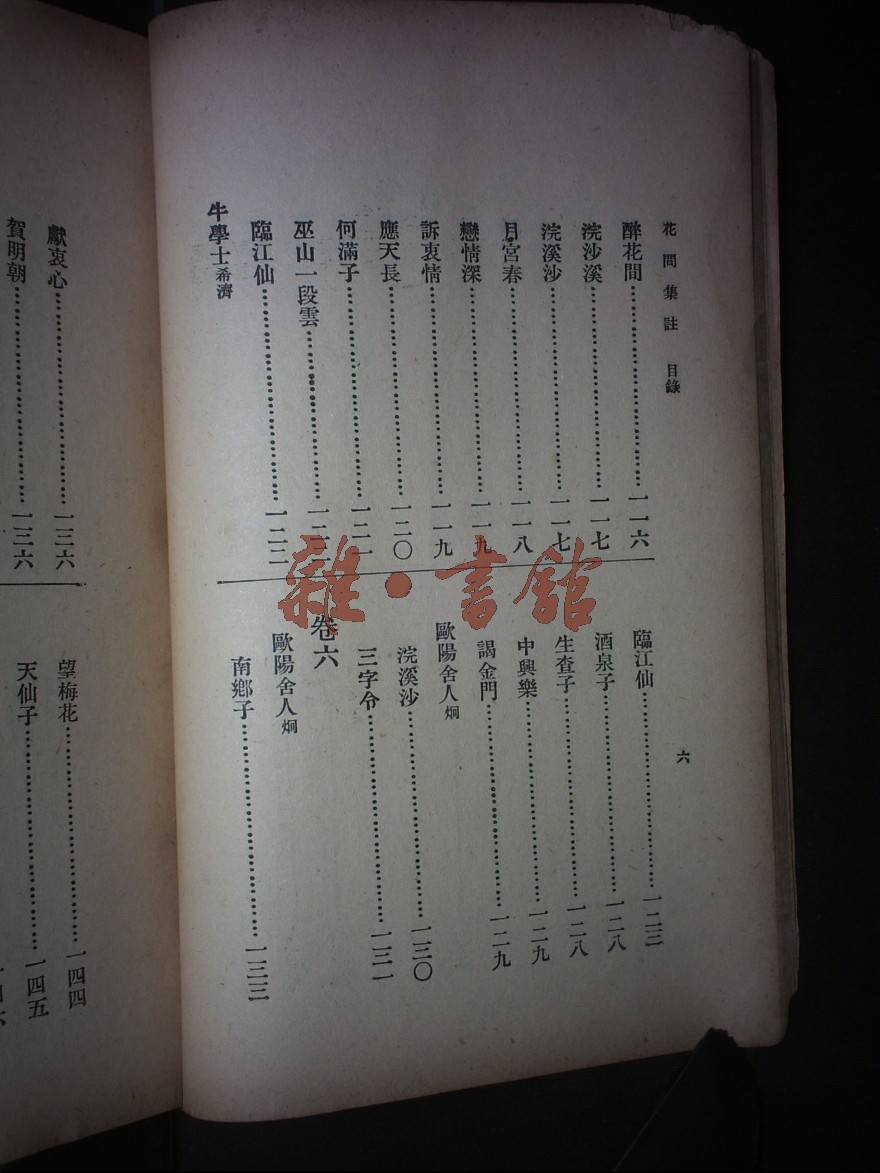 花間集註 目錄
六
醉花間……一一六
浣沙溪……一一七
浣溪沙……一一七
月宮春……一一八
戀情深……一一九
訴衷情……一一九
應天長……一二〇
何滿子……一二一
巫山一段雲……一二二
臨江仙……一二二
牛學士希濟
臨江仙……一二三
酒泉子……一二八
生查子……一二八
中興樂……一二九
謁金門……一二九
歐陽舍人炯
浣溪沙……一三〇
三字令……一三一
卷六
歐陽舍人炯
南鄉子……一三三
獻衷心……一三六
賀明朝……一三六
望梅花……一四四
天仙子……一四五
雜·書館